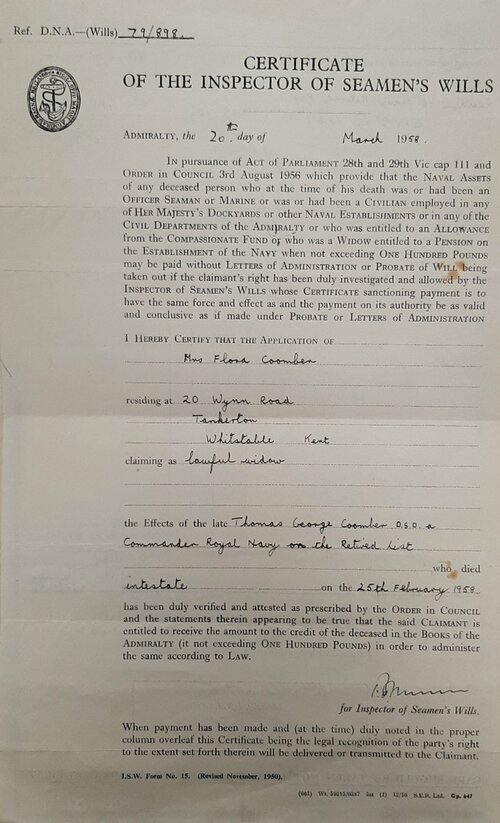 Ref. D.N.A.—(Wills) 79/898.
CERTIFICATE
OF THE INSPECTOR OF SEAMEN'S WILLS
ADMIRALTY, the 20th. day of March 1958.
IN pursuance of ACT OF PARLIAMENT 28th and 29th Vic cap 111 and
ORDER IN COUNCIL 3rd August 1956 which provide that the NAVAL ASSETS
of any deceased person who at the time of his death was or had been an
OFFICER SEAMAN OR MARINE or was or had been a CIVILIAN employed in any
of HER MAJESTY'S DOCKYARDS or other NAVAL ESTABLISHMENTS or in any of the
CIVIL DEPARTMENTS of the ADMIRALTY or who was entitled to an ALLOWANCE
from the COMPASSIONATE FUND or who was a WIDOW entitled to a PENSION on
the ESTABLISHMENT OF THE NAVY when not exceeding ONE HUNDRED POUNDS
may be paid without LETTERS OF ADMINISTRATION or PROBATE OF WILL being
taken out if the claimant's right has been duly investigated and allowed by the
INSPECTOR OF SEAMEN'S WILLS whose CERTIFICATE sanctioning payment is to
have the same force and effect as and the payment on its authority be as valid
and conclusive as if made under PROBATE or LETTERS OF ADMINISTRATION
I HEREBY CERTIFY THAT THE APPLICATION OF
Mrs Flora Coomber
residing at 20 Wynn Road
Tankerton
Whitstable Kent
claiming as lawful widow
the Effects of the late Thomas George Coomber D.S.O. a
Commander Royal Navy on the Retired list
who died
intestate on the 25th February 1958.
has been duly verified and attested as prescribed by the ORDER IN COUNCIL
and the statements therein appearing to be true that the said CLAIMANT is
entitled to receive the amount to the credit of the deceased in the BOOKS OF THE
ADMIRALTY (it not exceeding ONE HUNDRED POUNDS) in order to administer
the same according to LAW.
for Inspector of Seamen's Wills.
When payment has been made and (at the time) duly noted in the proper
column overleaf this Certificate being the legal recognition of the party's right
to the extent set forth therein will be delivered or transmitted to the Claimant.
I.S.W. Form No. 15. (Revised November, 1950).
S.E.R. Ltd. Gp. 647